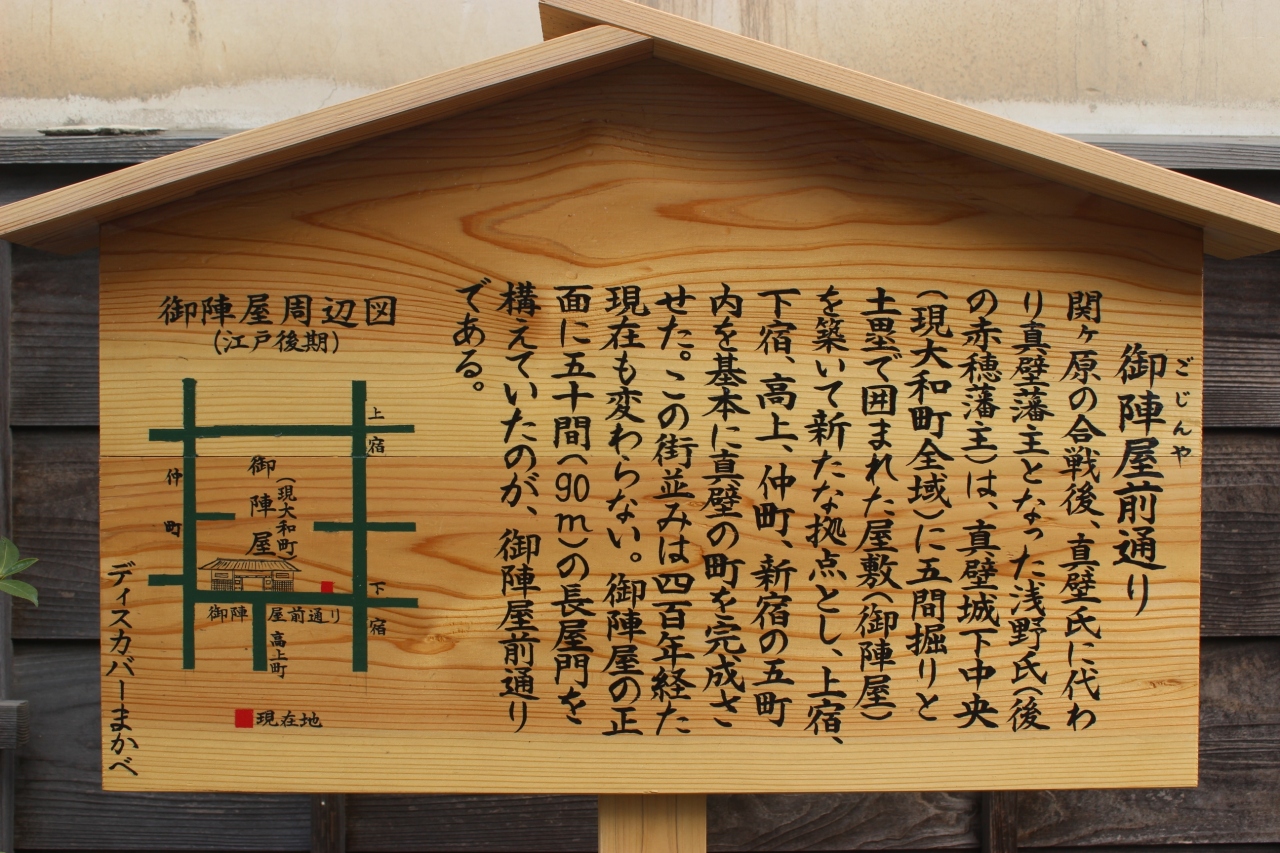 ごじんや
御陣屋前通り
関ヶ原の合戦後、真壁氏に代わ
り真壁藩主となった浅野氏(後
の赤穂藩主)は、真壁城下中央
(現大和町全域)に五間掘りと
土塁で囲まれた屋敷(御陣屋)
を築いて新たな拠点とし、上宿、
下宿、高上、仲町、新宿の五町
内を基本に真壁の町を完成さ
せた。この街並みは四百年経た
現在も変わらない。御陣屋の正
面に五十間(90m)の長屋門をさ
構えていたのが、御陣屋前通り
である。
御陣屋周辺図
(江戸後期)
上宿
仲町
御陣屋
(現大和町)
下宿
御陣屋前通り
高上町
現在地
ディスカバーまかべ